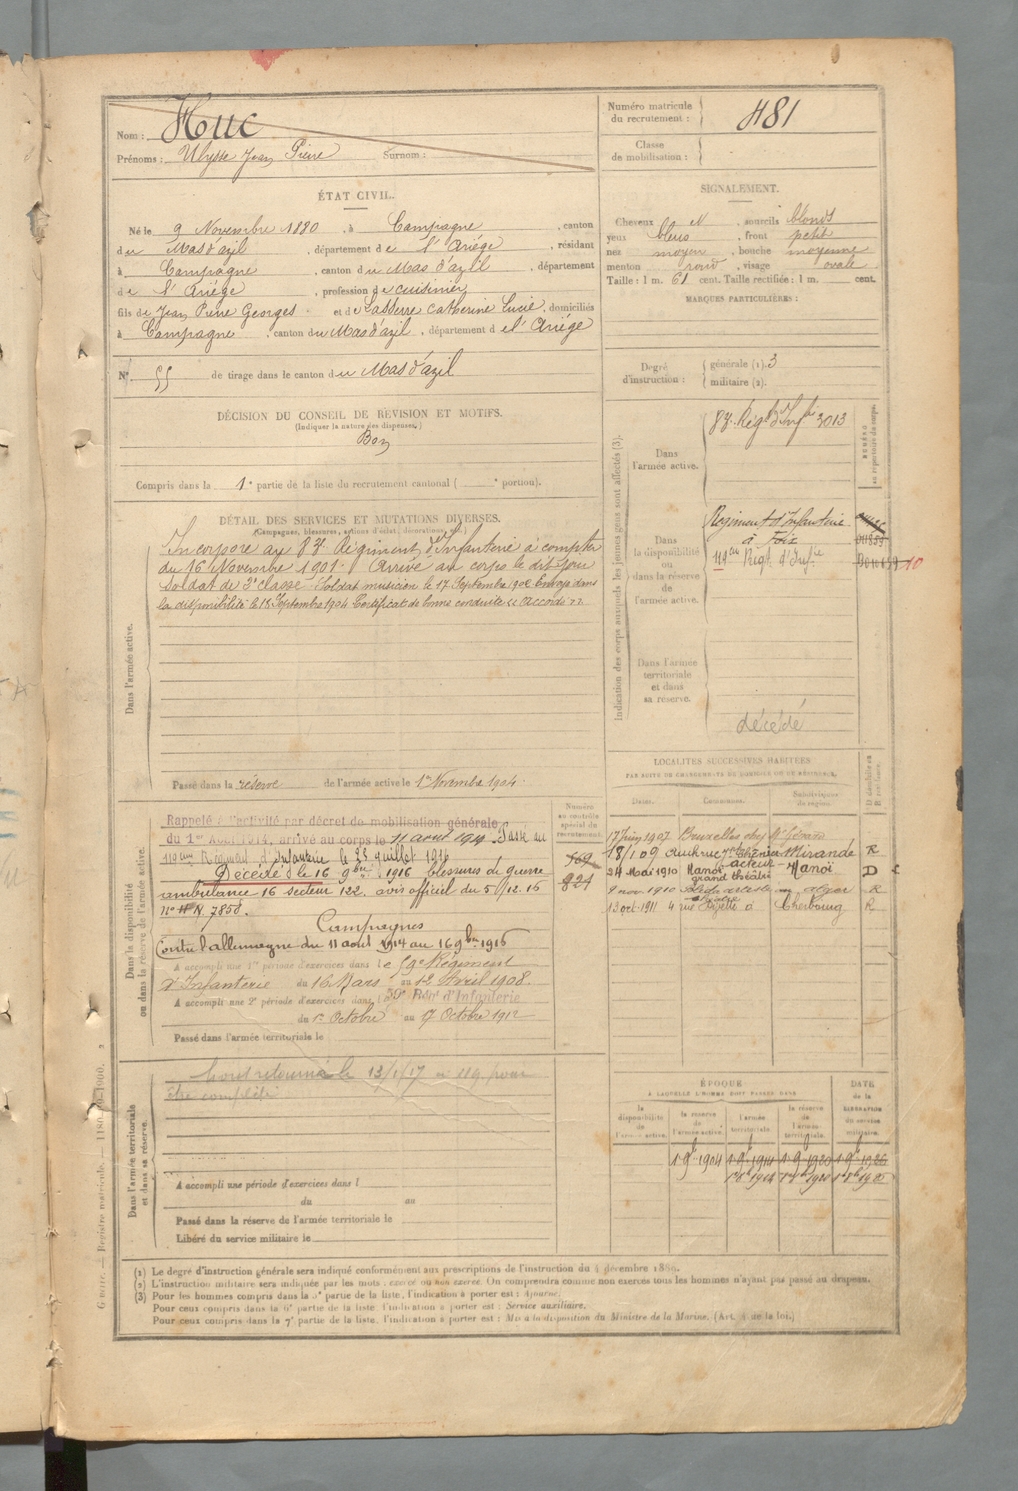 Nom : Huc
Prénoms : Ulysse Jean Pierre Surnom :
ÉTAT CIVIL.
Né le 9 Novembre 1880, à Campagne, canton
du Mas d'azil, département de l'Ariége, résidant
à Campagne, canton du Mas d'azil, département
de l'Ariége, profession de cuisinier
fils de Jean Pierre Georges et de Lasserre Catherine Lucie, domiciliés
à Campagne, canton du Mas d'azil, département de l'Ariége
N° 55 de tirage dans le canton du Mas d'azil
DÉCISION DU CONSEIL DE REVISION ET MOTIFS.
(Indiquer la nature des dispenses.)
Bon
Compris dans la 1e partie de la liste du recrutement cantonal ( e portion).
DÉTAIL DES SERVICES ET MUTATIONS DIVERSES.
(Campagnes, blessures, actions d'éclat, décorations, etc.)
Dans l'armée active.
Incorporé au 83e Régiment d'Infanterie à compter
du 16 Novembre 1901. Arrivé au corps le dit jour
Soldat de 2e classe. Soldat musicien le 17 Septembre 1902 Envoyé dans
la disponibilité le 18 Septembre 1904 Certificat de bonne conduite " Accordé "
Passé dans la réserve de l'armée active le 1er Novembre 1904.
Dans la disponibilité
ou dans la réserve de l'armée active.
Rappelé à l'activité par décret de mobilisation générale
du 1er Août 1914, arrivé au corps le 11 aout 1914. Passé au
119ème Régiment d'infanterie le 22 juillet 1916
Décédé le 16 9bre 1916 blessures de guerre
ambulance 16 secteur 122, avis officiel du 5/12.16
n° 7858.
Campagnes
Contre l'allemagne du 11 aout 1914 au 16 9bre 1916
A accompli une 1re période d'exercices dans le 59e Régiment
d'Infanterie du 16 Mars au 12 Avril 1908.
A accompli une 2e période d'exercices dans l 59e Régt d'Infanterie
du 1er Octobre au 17 Octobre 1912
Passé dans l'armée territoriale le
Numéro
au contrôle
spécial du
recrutement.
569
824
Dans l'armée territoriale
et dans sa réserve.
retourné le 13/1/17 a 119 pour
être complété
A accompli une période d'exercices dans l
du au
Passé dans la réserve de l'armée territoriale le
Libéré du service militaire le
Numéro matricule
du recrutement : 481
Classe
de mobilisation :
SIGNALEMENT.
Cheveux N, sourcils blonds
yeux bleus, front petit
nez moyen, bouche moyenne
menton rond, visage ovale
Taille : 1 m. 61 cent. Taille rectifiée : 1 m. cent.
MARQUES PARTICULIÈRES :
Degré
d'instruction :
générale (1). 3
militaire (2).
Indication des corps auxquels les jeunes gens sont affectés (3).
NUMÉRO
au répertoire du corps.
Dans
l'armée active.
83e Régt d'Infie 3013
Dans
la disponibilité
ou
dans la réserve
de
l'armée active.
Régiment d'Infanterie
à Foix
011859
119ème Régt. d'Infie
Dans l'armée
territoriale
et dans
sa réserve.
décédé
LOCALITÉS SUCCESSIVES HABITÉES
PAR SUITE DE CHANGEMENTS DE DOMICILE OU DE RÉSIDENCE.
Dates. Communes. Subdivisions
de région.
17 Juin 1907 Bruxelles chez Mr Gérard
18/1 09 Mirande R
24 Mai 1910 Hanoï acteur - Hanoï D
grand théâtre
9 nov 1910 artiste alger R
13 oct. 1911 4 rue à Cherbourg R
ÉPOQUE
À LAQUELLE L'HOMME DOIT PASSER DANS
la
disponibilité
de
l'armée active.
la réserve
de
l'armée active.
l'armée
territoriale.
la réserve
de
l'armée
territoriale.
DATE
de la
LIBÉRATION
du service
militaire.
1-9b-1904 1-9b-1914 1-9b-1920 1-9b-1926
G. — Registre matricule. — 1900.
(1) Le degré d'instruction générale sera indiqué conformément aux prescriptions de l'instruction du 4 décembre 1889.
(2) L'instruction militaire sera indiquée par les mots : exercé ou non exercé. On comprendra comme non exercés tous les hommes n'ayant pas passé au drapeau.
(3) Pour les hommes compris dans la 5e partie de la liste, l'indication à porter est : Ajourné.
Pour ceux compris dans la 6e partie de la liste, l'indication à porter est : Service auxiliaire.
Pour ceux compris dans la 7e partie de la liste, l'indication à porter est : Mis à la disposition du Ministre de la Marine. (Art. 4 de la loi.)